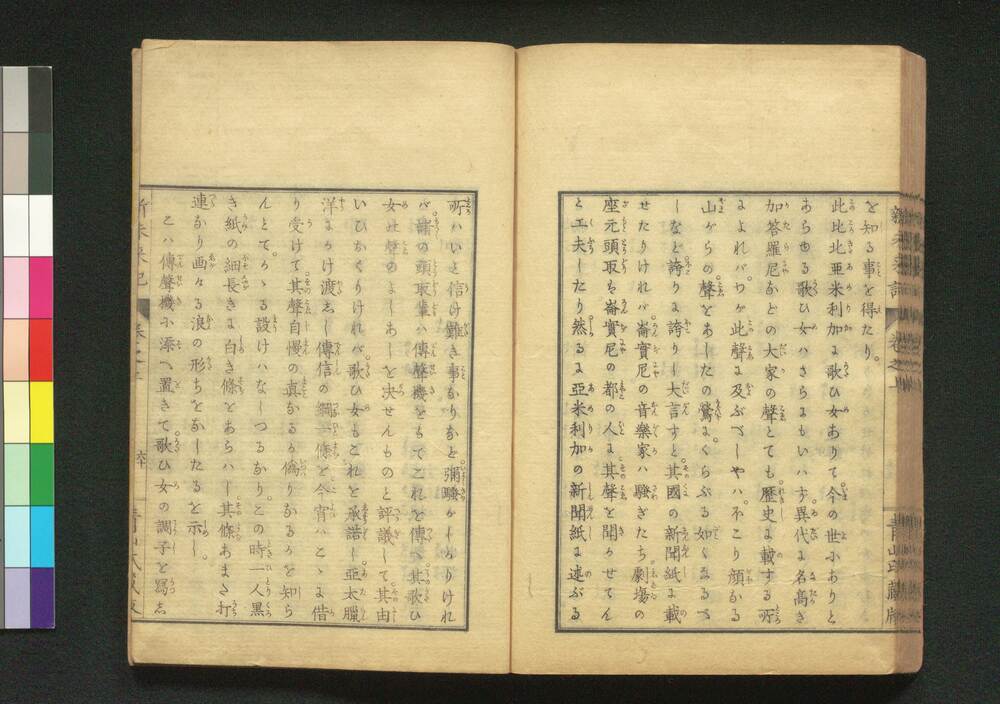 を知る事を得たり。
此比北亜米利加に歌ひ女ありて今の世にありと
あらゆる歌ひ女ハさらにもいハす異代に名高き
加答羅尼などの大家の聲とても歴史に載する所
によれバワが此聲に及ぶべしやハ。ほこり顔なる
山がらの聲をあしたの鶯にくらぶる如くなるべ
しなど誇りに誇りし大言すと其國の新聞紙に載
せたりけれバ崙實尼の音樂家ハ騒ぎたち劇場の
座元頭取も崙實尼の都の人に其聲を聞かせてん
と工夫したり然るに亜米利加の新聞紙に述ぶる
所ハいと信け難き事なりなど彌騒がしかりけれ
バ諸の頭取輩ハ傳聲機をもてこれを傳へ其歌ひ
女此聲のよしあしを決せんものと評議して其由
いひおくりけれバ歌ひ女もこれを承諾し亞太臘
洋にかけ渡しゝ傳信の綱一條を今宵ハこゝに借
り受けて其聲自慢の真なるか偽りなるかを知ら
んとてかゝる設けハなしつるなり。この時一人黒
き紙の細長きに白き條をあらハし其條あまた打
連なり画ける浪の形ちをなしたるを示し。
こハ傳聲機に添へ置きて歌ひ女の調子を寫し
新未来記
巻之上
六
青山氏蔵版